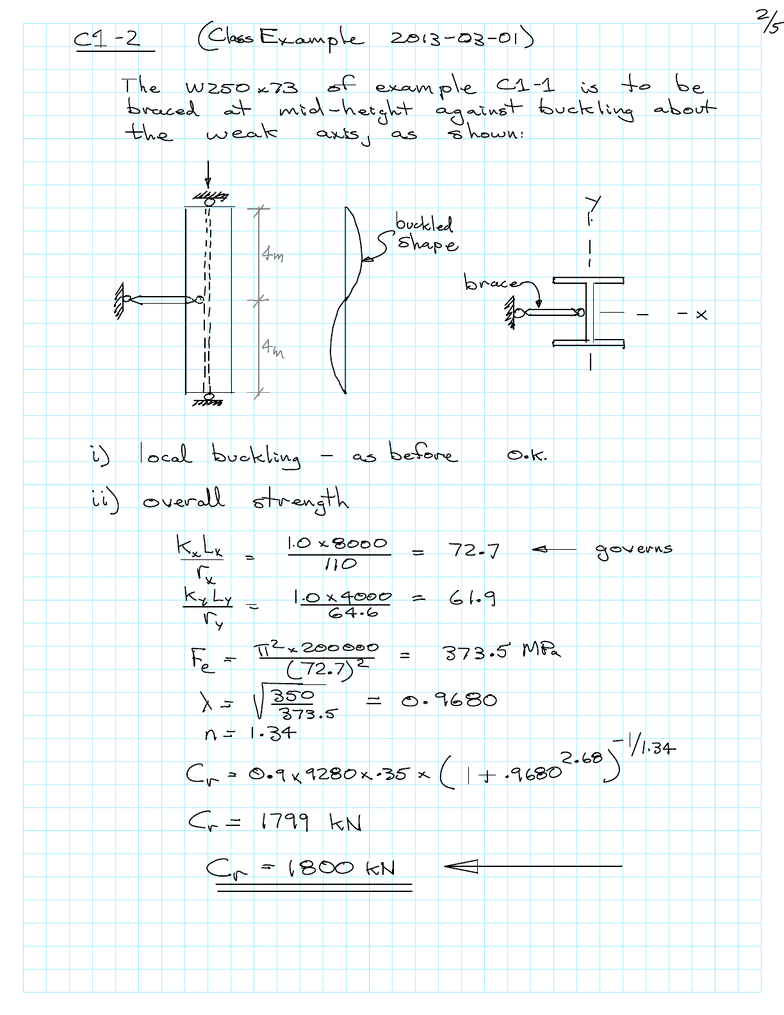 2/5
C1-2 (Class Example 2013-03-01)
The W250x73 of example C1-1 is to be
braced at mid-height against buckling about
the weak axis, as shown:
4m
4m
buckled
shape
brace
Y
x
i) local buckling - as before o.k.
ii) overall strength
KxLx/rx = 1.0 x 8000/110 = 72.7 ← governs
KyLy/ry = 1.0 x 4000/64.6 = 61.9
Fe = π² x 200000/(72.7)² = 373.5 MPa
λ = √(350/373.5) = 0.9680
n = 1.34
Cr = 0.9 x 9280 x .35 x (1 + .9680^2.68)^-1/1.34
Cr = 1799 kN
Cr = 1800 kN